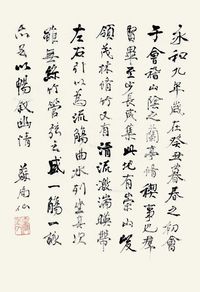 永和九年歲在癸丑暮春之初會
于會稽山陰之蘭亭脩禊事也群
賢畢至少長咸集此地有崇山峻
領茂林脩竹又有清流激湍映帶
左右引以為流觴曲水列坐其次
雖無絲竹管弦之盛一觴一詠
亦足以暢敘幽情